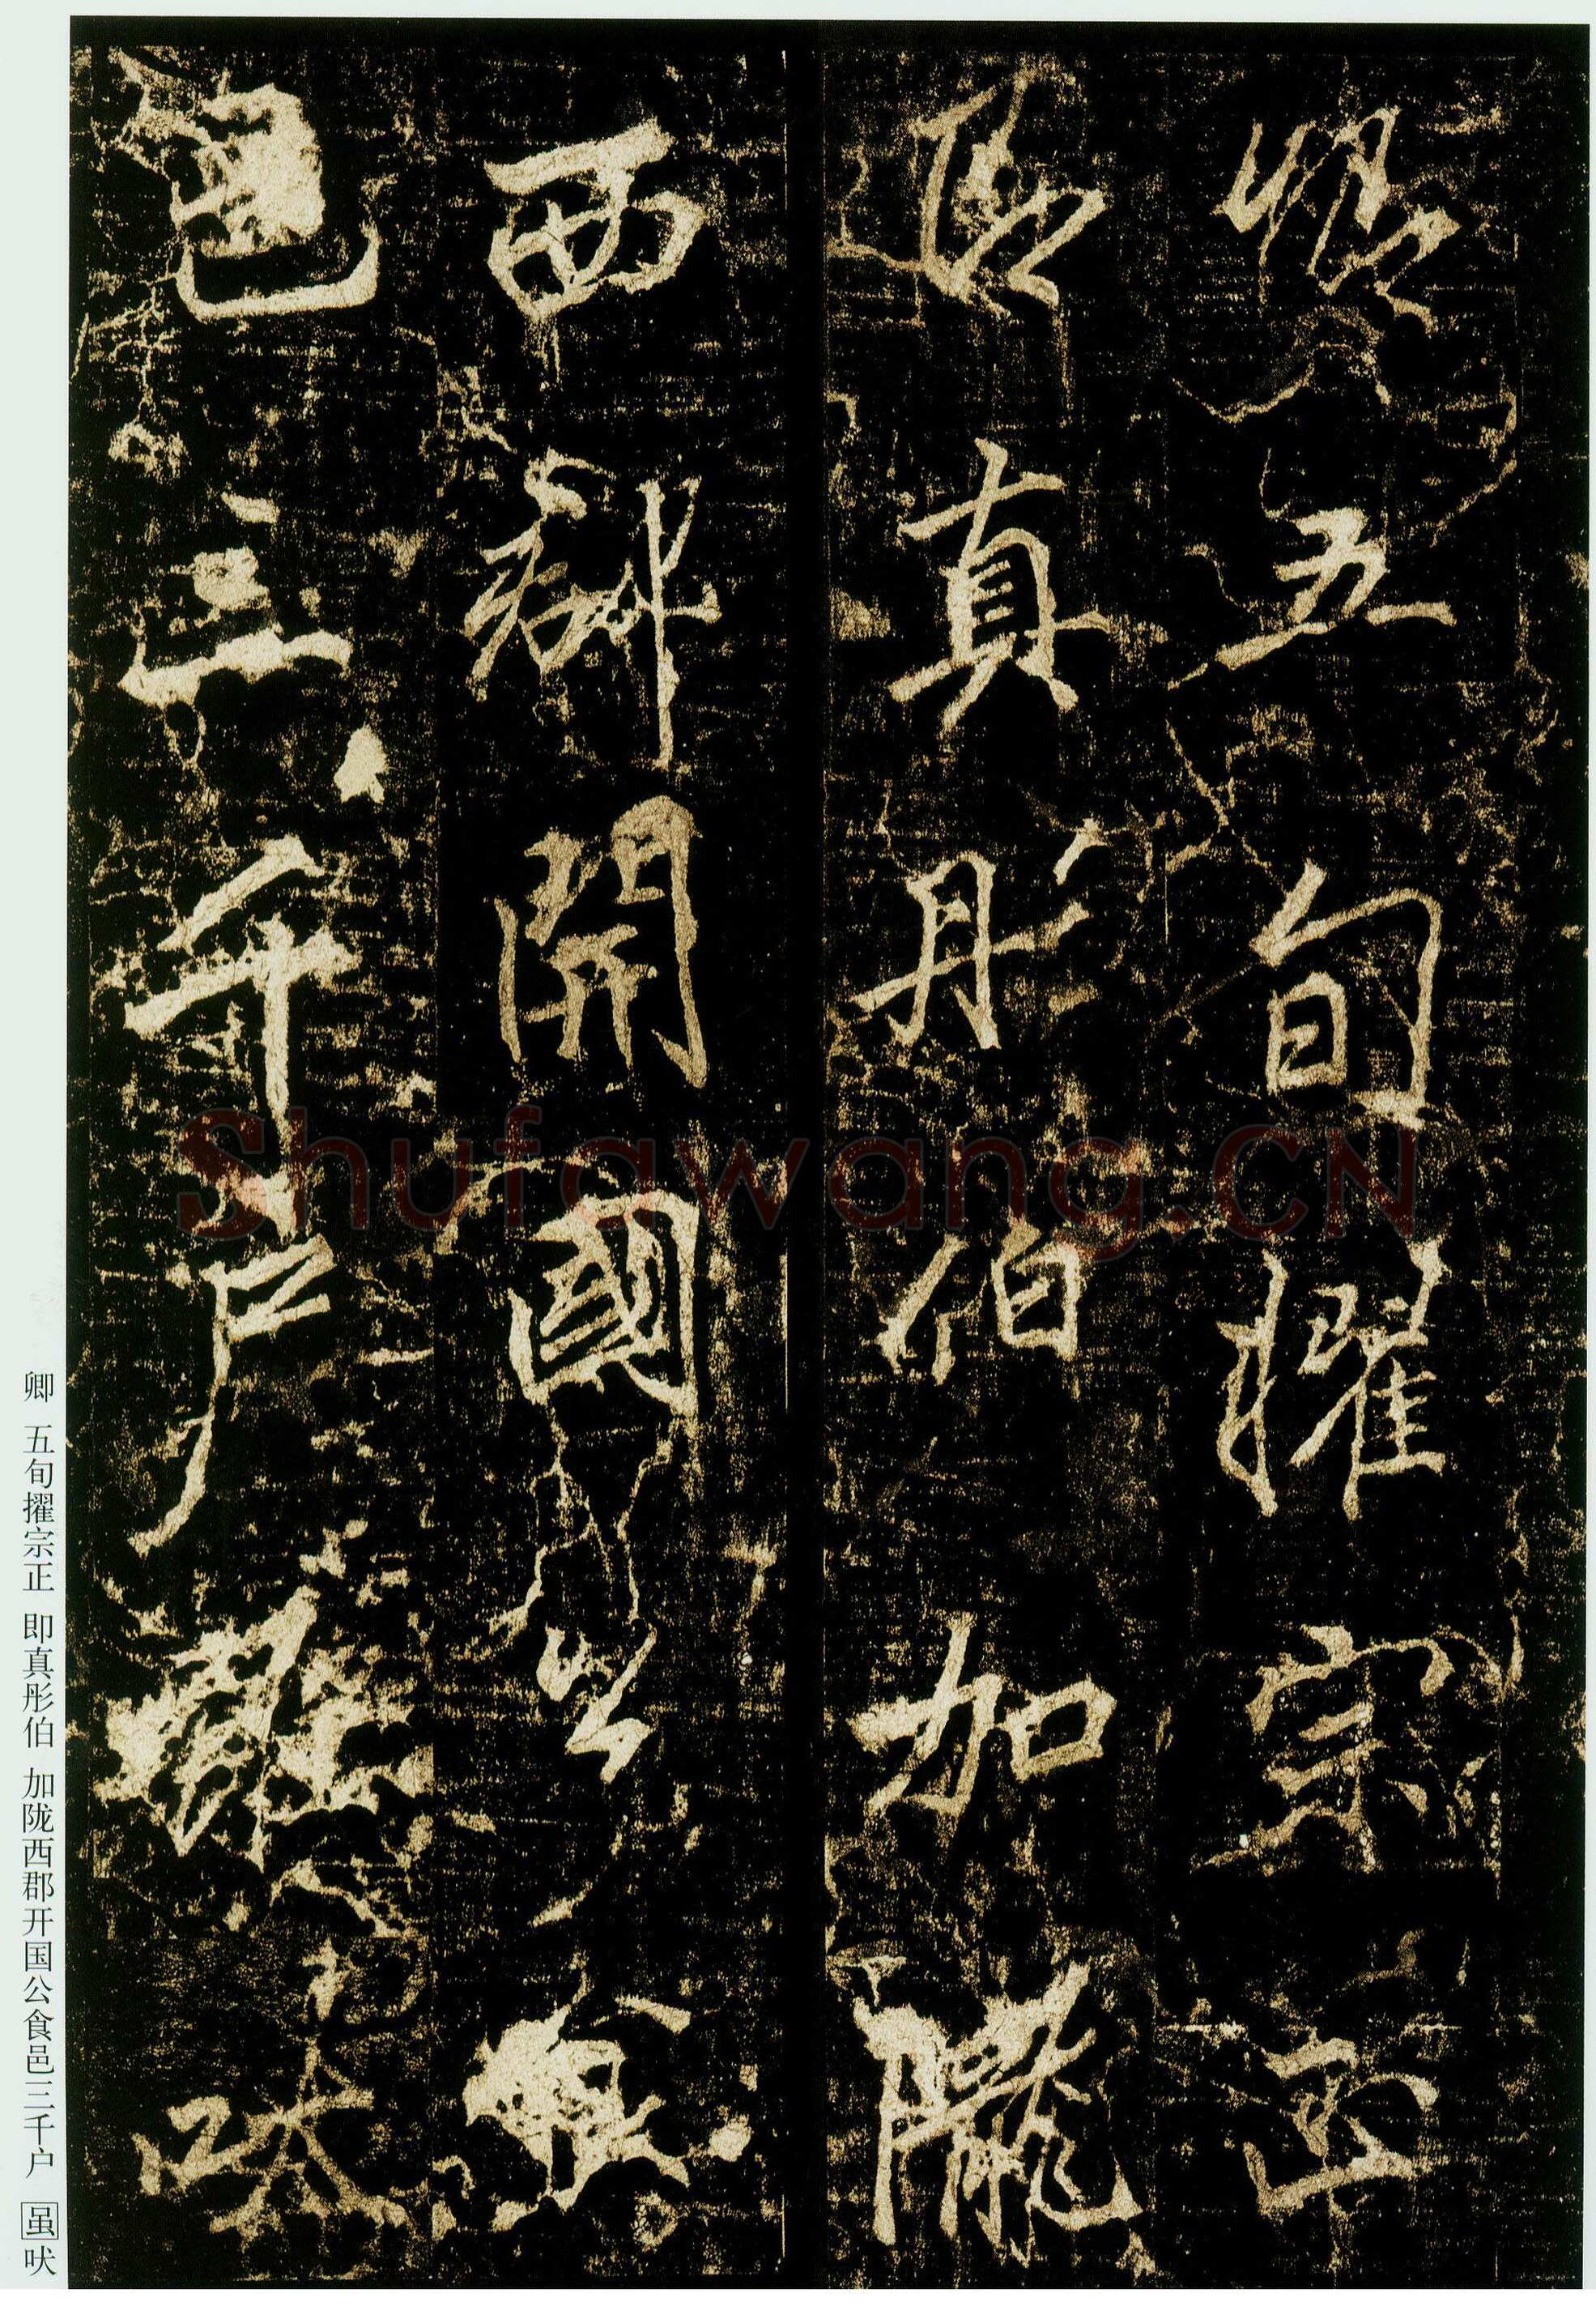 卿五旬擢宗正
即真彤伯加隴
西郡開國公食
邑三千户雖吠
卿 五旬擢宗正 即真彤伯 加陇西郡开国公食邑三千户 虽吠
Shufawang.CN